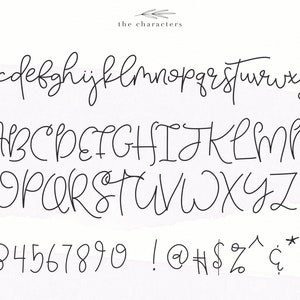 the characters
cdefghijklmnopqrstuvwxy
ABCDEFGHIJKLM
OPQRSTUVWXYZ
34567890 !@#$%^¢*